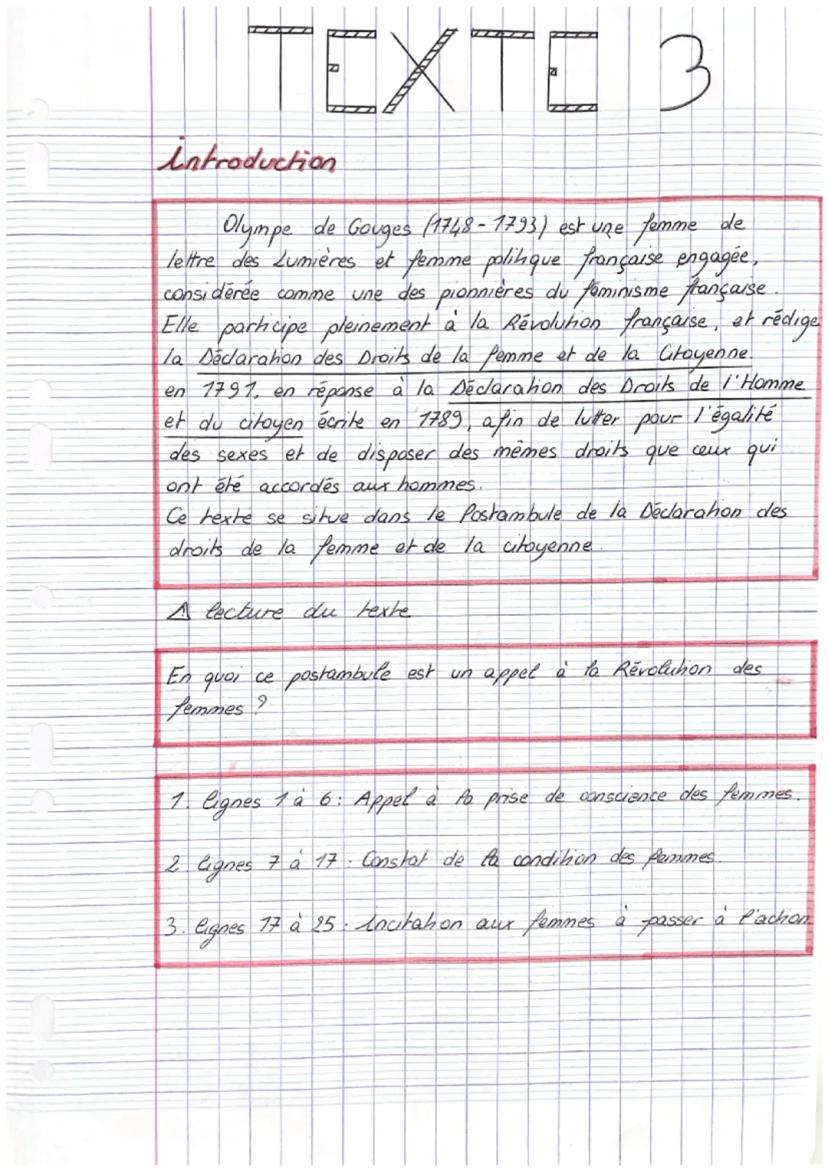 TEXTE 3
introduction
Olympe de Gouges (1748-1793) est une femme de
lettre des Lumières et femme politique française engagée,
considérée comme une des pionnières du féminisme française.
Elle participe pleinement à la Révolution française, et rédige
la Déclaration des Droits de la femme et de la Citoyenne
en 1791, en réponse à la Déclaration des Droits de l'Homme
et du citoyen écrite en 1789, afin de lutter pour l'égalité
des sexes et de disposer des mêmes droits que ceux qui
ont été accordés aux hommes.
Ce texte se situe dans le Postambule de la Déclaration des
droits de la femme et de la citoyenne.
⚠ lecture du texte
En quoi ce postambule est un appel à la Révolution des
femmes ?
1. lignes 1 à 6 : Appel à la prise de conscience des femmes.
2. lignes 7 à 17 : Constat de la condition des femmes.
3. lignes 17 à 25 : incitation aux femmes à passer à l'action